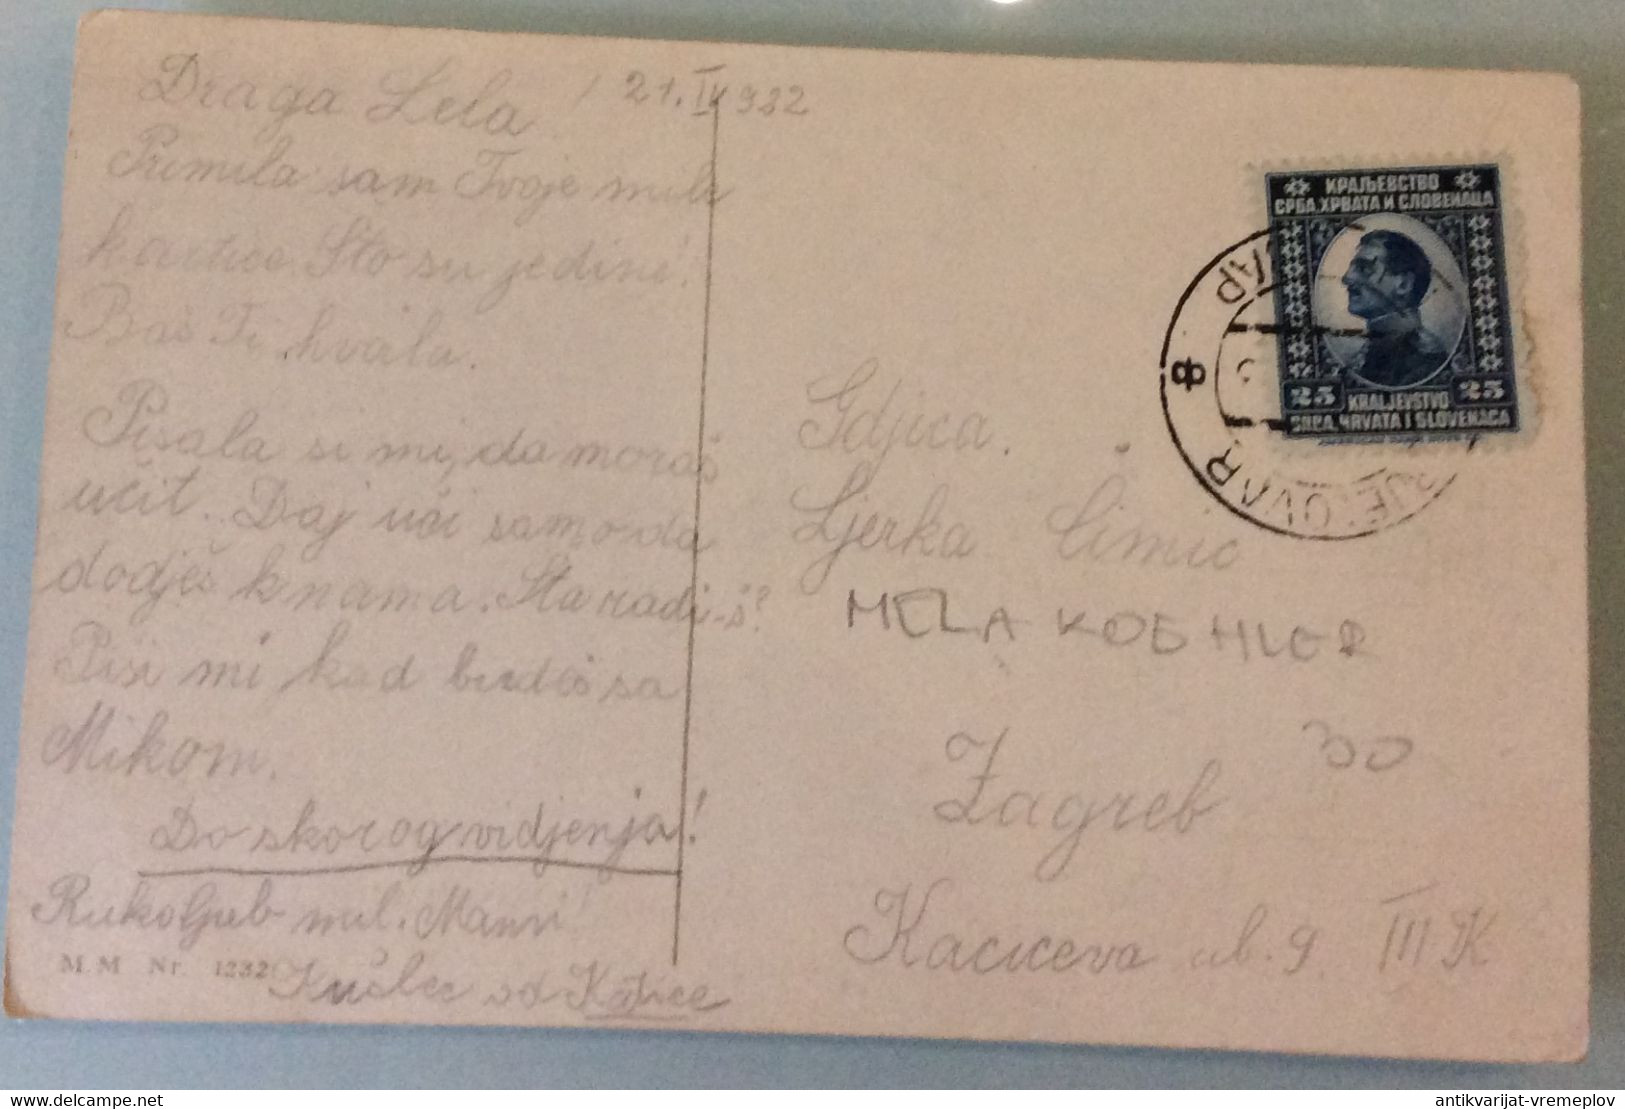 Draga Lela / 21. IV 932
Primila sam Tvoje mile
kartice. Što su jedini!
Baš Ti hvala.
Pisala si mi, da moraš
učit. Daj uči samo da
dodješ k nama. Šta radi-š?
Piši mi kad budeš sa
Mikom.
Do skorog vidjenja!
Rukoljub mil. Mami!
M. M. Nr. 1232
od Katice
КРАЉЕВСТВО
СРБА, ХРВАТА И СЛОВЕНАЦА
25 KRALJEVSTVO 25
SRBA, HRVATA I SLOVENACA
BJELOVAR
8
Gdjica.
Ljerka Šimić
MELA KOEHLER
30
Zagreb
Kačićeva ul. 9. III K
Delcampe.net
antikvarijat-vremeplov